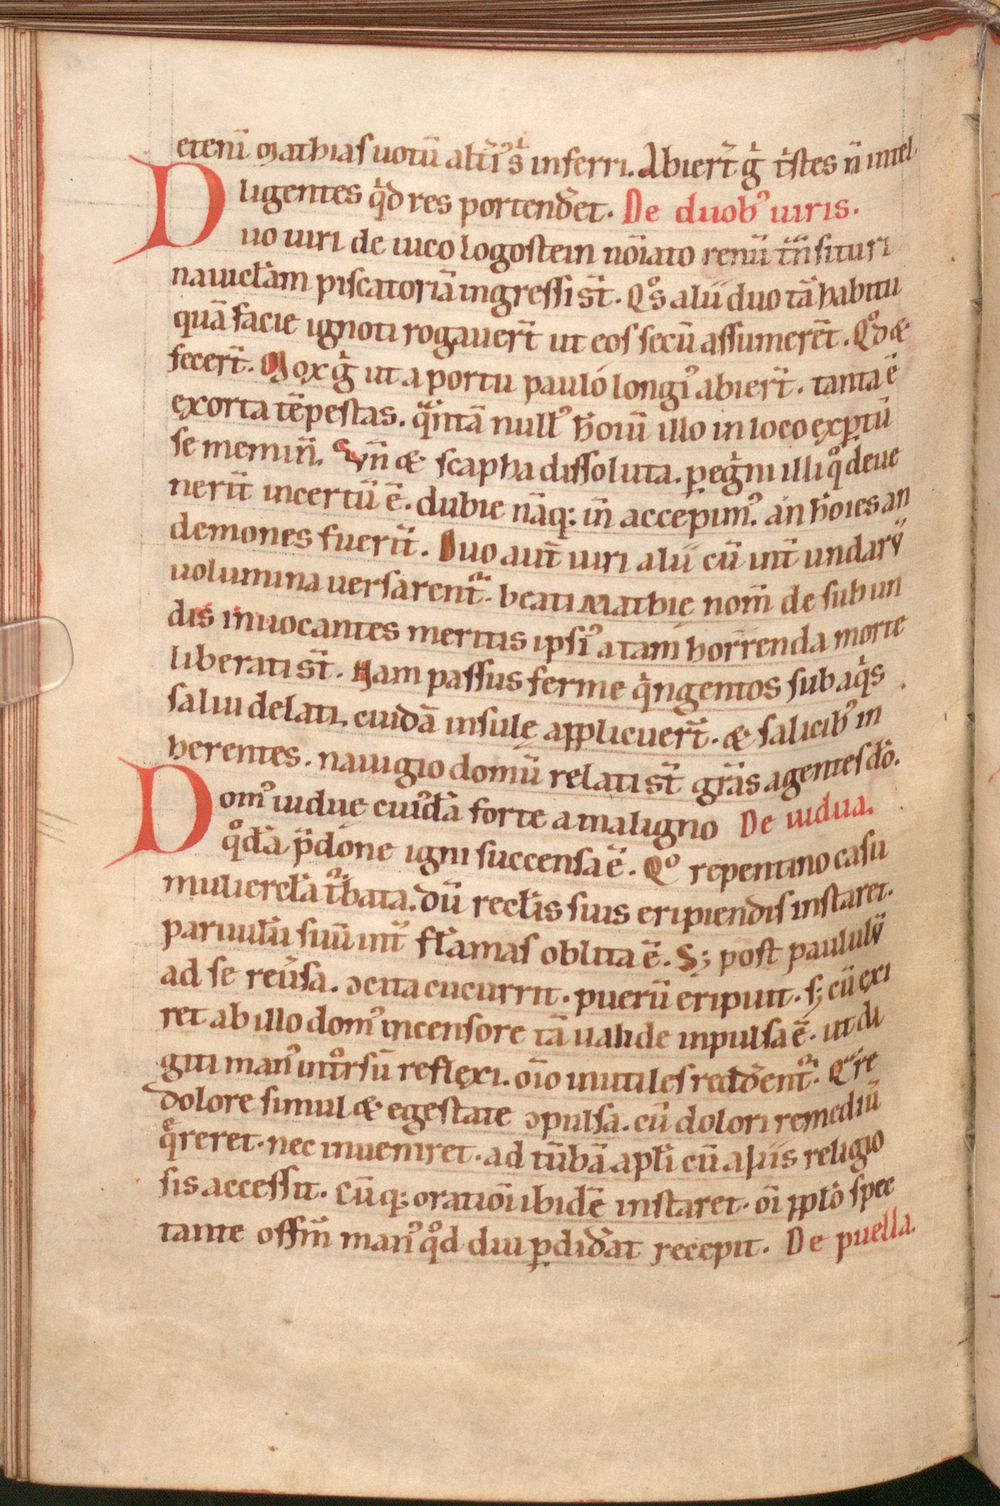 etenī mathias uotū alt̄i᾽ s̄ inferri. Abier̄t ḡ t̄stes n̄ intel
ligentes q̇d res portend̄et. De duob᾽ uiris.
Duo uiri de uico logostein nōiato renū t̄nsituri
nauiclām piscatoriā ingressi s̄t. Qos alii duo tā habitu
quā facie ignoti rogauer̄t ut eos secū assumer̄et. Qod &
fecer̄t. Mox ḡ ut a portu pauló longi᾽ abier̄t. tanta ē
exorta tēpestas. q̄ntā null᾽ hoīū illo in loco exptū
se memin̄. Vn̄ & scapha dissoluta. peḡni illi qo deue
ner̄it incertū ē. dubie nāq; in̄ accepim᾽. an hōies an
demones fuer̄it. Duo aut̄ uiri alii cū int̄ undarū
uolumina uersarent̄. beati Mathie nom̄ de sub un
dis inuocantes meritis ipsi᾽ a tam horrenda morte
liberati s̄t. Nam passus ferme q̇ngentos sub aq̇s
salui delati. cuidā insulę applicuer̄t. & salicib᾽ in
herentes. nauigio domū relati s̄t grās agentes dō.
Dom᾽ uidue cuid̄ā forte a maligno De uidua.
qod̄ā p̄done igni succensa ē. Qo repentino casu
muliercl̄a t̄bata. dū recl̄is suis eripiendis instaret.
paruulū suū int̄ flāmas oblita ē. S; post paululū
ad se reūsa. ɔcita cucurrit. puerū eripuit. s; cū exi
ret ab illo dom᾽ incensore tā ualide inpulsa ē. ut di
giti man᾽ intrsū reflexi. oīo inutiles redd̄ent̄. Q̄re
dolore simul & egestate ɔpulsa. cū dolori remediū
q̄reret. nec inueniret. ad tūbā apl̄i cū aliis religio
sis accessit. Cūq; orationi ibidē instaret. oī pplō spec
tante offm̄ man᾽ qod diu pdid̄at recepit. De puella.